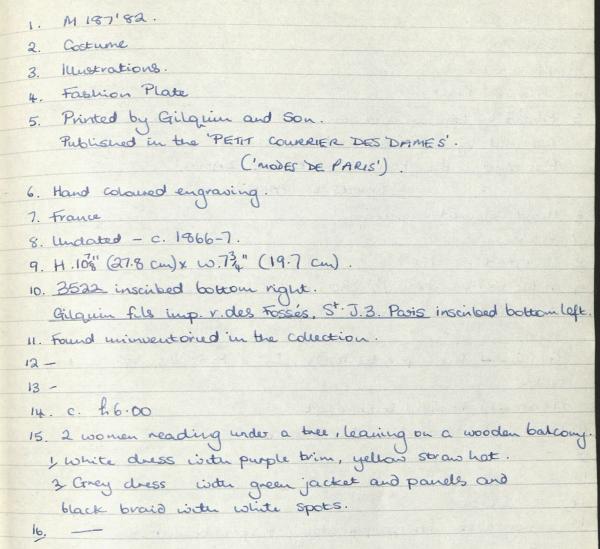 1. M 187'82.
2. Costume
3. Illustrations.
4. Fashion Plate
5. Printed by Gilquin and Son.
Published in the 'PETIT COURRIER DES DAMES'.
('MODES DE PARIS').
6. Hand coloured engraving.
7. France
8. Undated - c. 1866-7.
9. H. 10⅞" (27.8 cm) x W. 7¾" (19.7 cm).
10. 3522 inscribed bottom right.
Gilquin fils imp. r. des Fossés, St. J. 3. Paris inscribed bottom left.
11. Found uninventoried in the collection.
12 -
13 -
14. c. £6.00
15. 2 women reading under a tree, leaning on a wooden balcony.
1/ White dress with purple trim, yellow straw hat.
2/ Grey dress with green jacket and panels and
black braid with white spots.
16. —